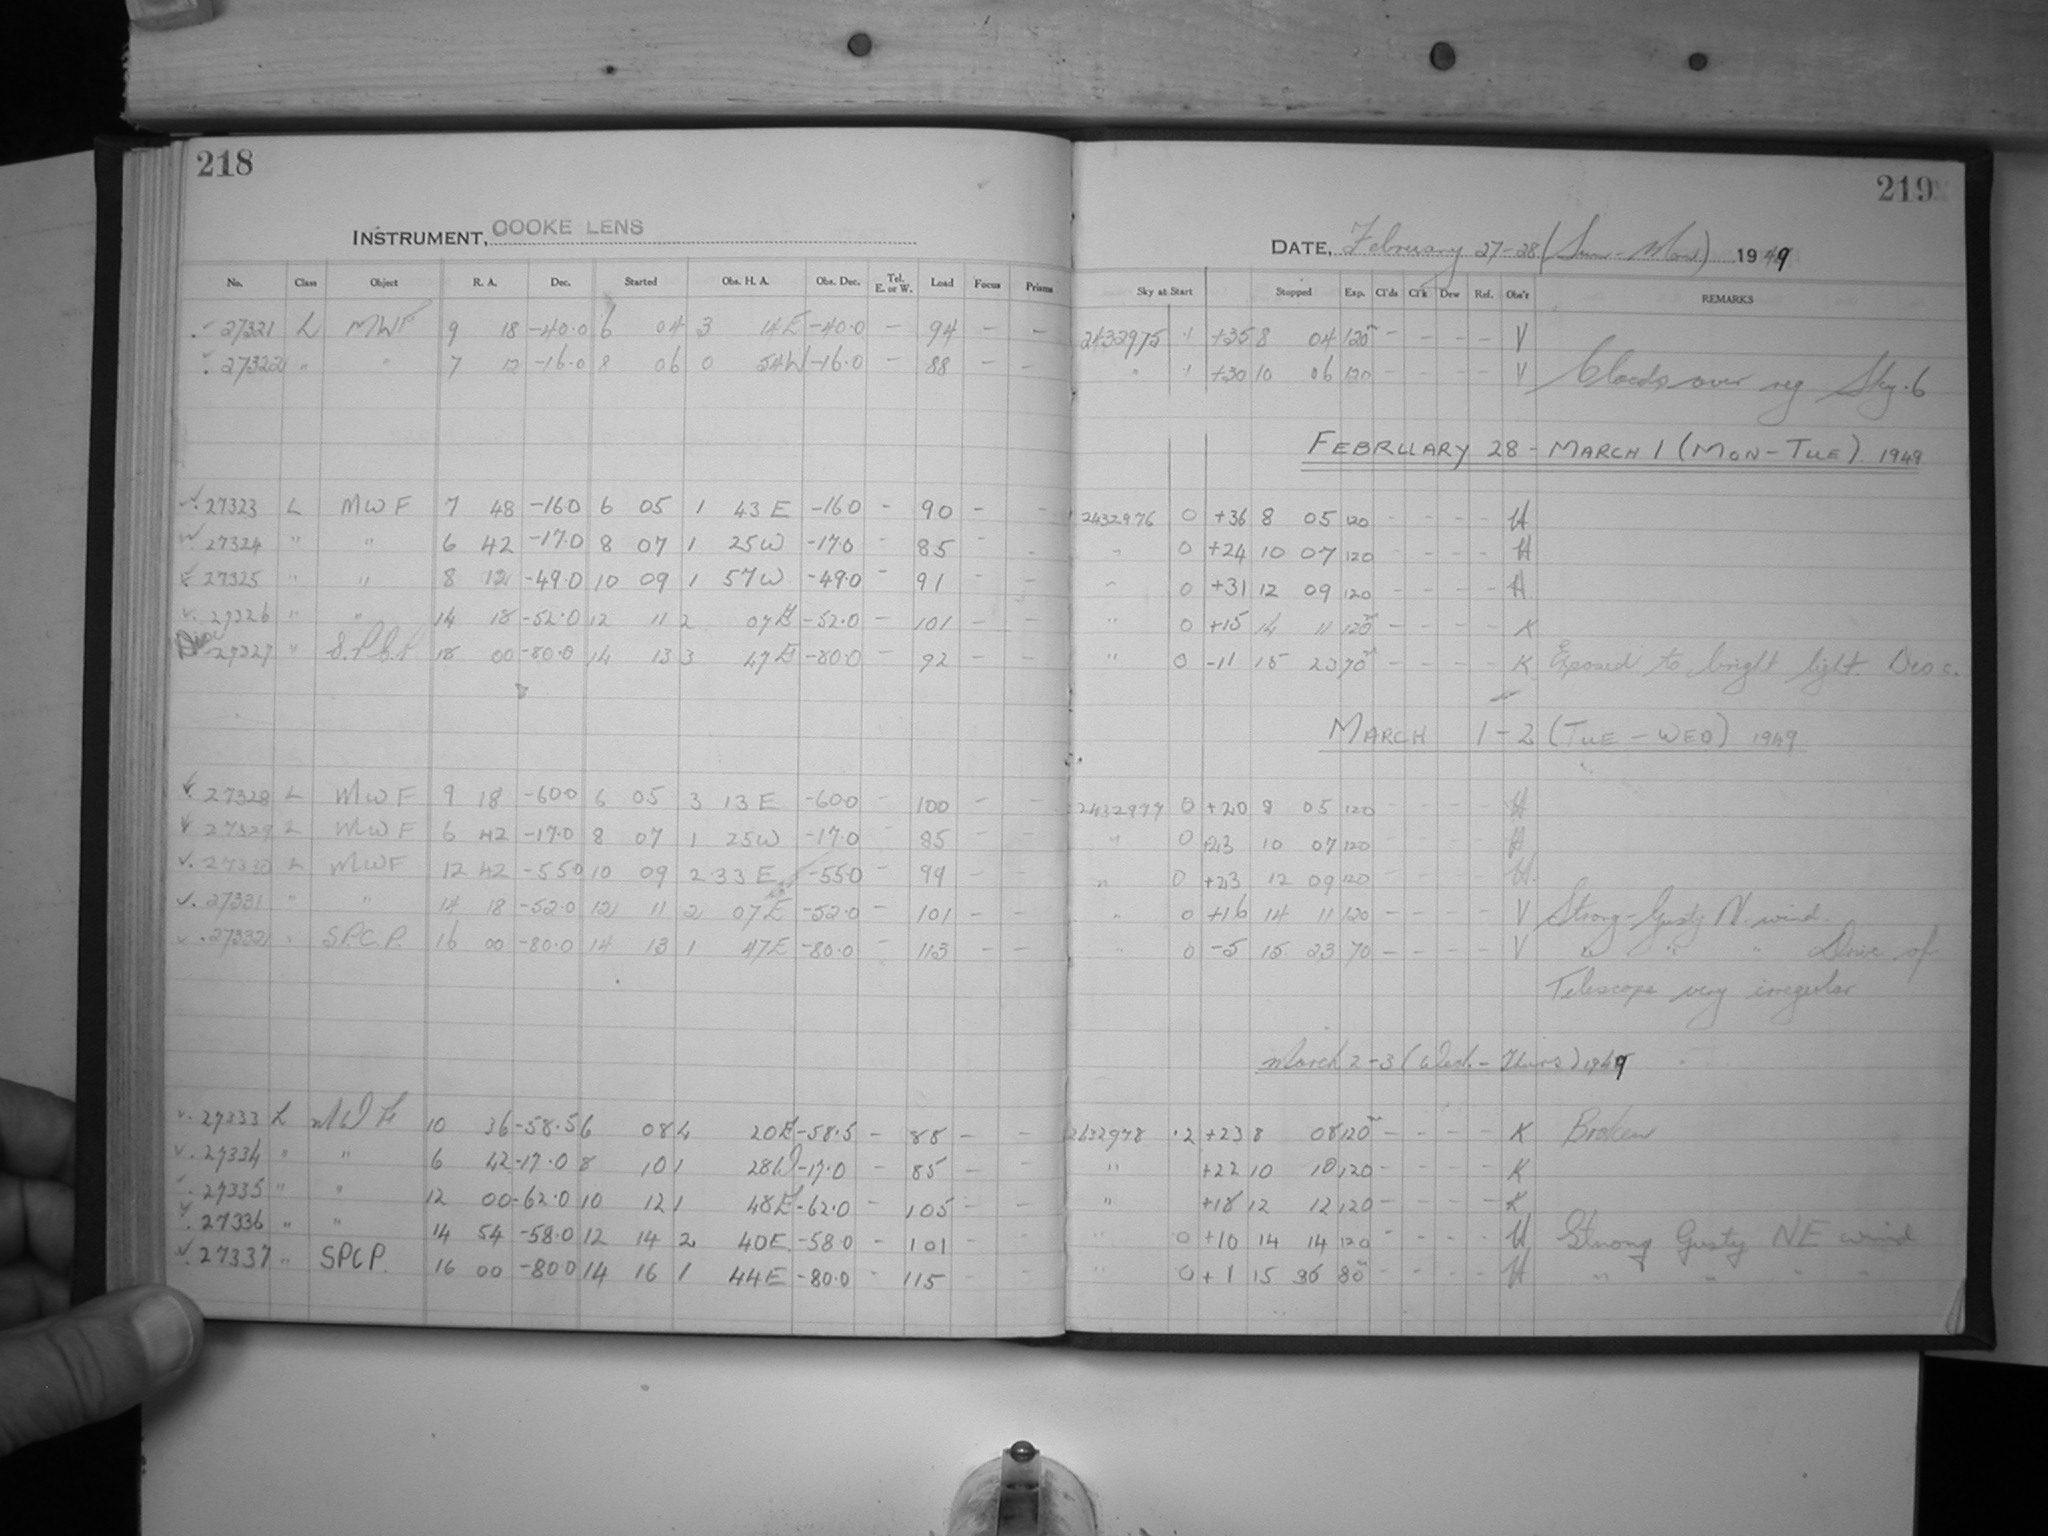 218
INSTRUMENT, COOKE LENS
No. Class Object R. A. Dec. Started Obs. H. A. Obs. Dec. Tel. E. or W. Load Focus Prisms
27321 L MWF 9 18 -40.0 6 04 3 14E -40.0 - 94 - -
27322 " " 7 12 -16.0 8 06 0 54W -16.0 - 88 - -
27323 L MWF 7 48 -16.0 6 05 1 43E -16.0 - 90 - -
27324 " " 6 42 -17.0 8 07 1 25W -17.0 - 85 - -
27325 " " 8 12 -49.0 10 09 1 57W -49.0 - 91 - -
27326 " " 14 18 -52.0 12 11 2 07E -52.0 - 101 - -
Disc 27327 " S.P.C.P. 18 00 -80.0 14 13 3 47E -80.0 - 92 - -
27328 L MWF 9 18 -60.0 6 05 3 13E -60.0 - 100 - -
27329 L MWF 6 42 -17.0 8 07 1 25W -17.0 - 85 - -
27330 L MWF 12 42 -55.0 10 09 2 33E -55.0 - 99 - -
27331 " " 14 18 -52.0 12 11 2 07E -52.0 - 101 - -
27332 " S.P.C.P. 16 00 -80.0 14 13 1 47E -80.0 - 113 - -
27333 L MWF 10 36 -58.5 6 08 4 20E -58.5 - 88 - -
27334 " " 6 42 -17.0 8 10 1 28W -17.0 - 85 - -
27335 " " 12 00 -62.0 10 12 1 48E -62.0 - 105 - -
27336 " " 14 54 -58.0 12 14 2 40E -58.0 - 101 - -
27337 " SPCP. 16 00 -80.0 14 16 1 44E -80.0 - 115 - -
219
DATE, February 27-28 (Sun-Mon) 1949
Sky at Start Stopped Exp. Cl'ds Cl'k Dew Ref. Obs'r REMARKS
2432975 .1 +35 8 04 120m - - - - V
" .1 +30 10 06 120 - - - - V Clouds over reg Sky .6
FEBRUARY 28 - MARCH 1 (MON-TUE). 1949
2432976 0 +36 8 05 120 - - - - H
" 0 +24 10 07 120 - - - - H
" 0 +31 12 09 120 - - - - H
" 0 +15 14 11 120m - - - - K
" 0 -11 15 23 70m - - - - K Exposed to bright light. Disc.
MARCH 1-2 (TUE-WED) 1949
2432977 0 +20 8 05 120 - - - - H
" 0 +23 10 07 120 - - - - H
" 0 +23 12 09 120 - - - - H.
" 0 +16 14 11 120 - - - - V Strong-Gusty N. wind.
" 0 -5 15 23 70 - - - - V " " " Drive of
Telescope very irregular
March 2-3 (Wed.-Thurs) 1949
2432978 .2 +23 8 08 120m - - - - K Broken
" +22 10 10 120 - - - - K
" +18 12 12 120 - - - - K
" 0 +10 14 14 120 - - - - H Strong Gusty NE wind
" 0 +1 15 36 80m - - - - H " " " "